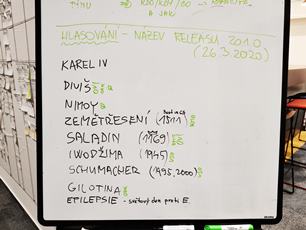 TÝMU
A JAK
HLASOVÁNÍ - NÁZEV RELEASU 2010
(26.3.2020)
KAREL IV
DIVIŠ
NIMOY
ZEMĚTŘESENÍ (1511)
SALADIN (1169)
IWODŽIMA (1945)
SCHUMACHER (1995, 2000)
GILOTINA
EPILEPSIE - světový den proti E.